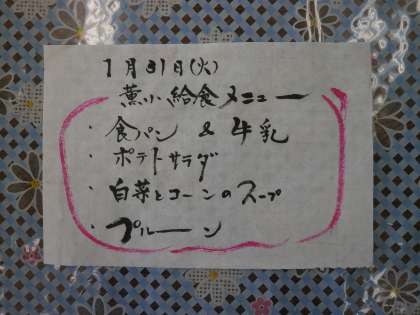 1月31日(火)
薫小給食メニュー
・食パン & 牛乳
・ポテトサラダ
・白菜とコーンのスープ
・プルーン